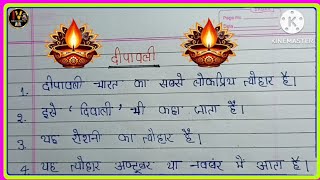 दीपावली
1. दीपावली भारत का सबसे लोकप्रिय त्यौहार है।
2. इसे 'दिवाली' भी कहा जाता है।
3. यह रोशनी का त्यौहार है।
4. यह त्यौहार अक्टूबर या नवंबर में आता है।
KINEMASTER